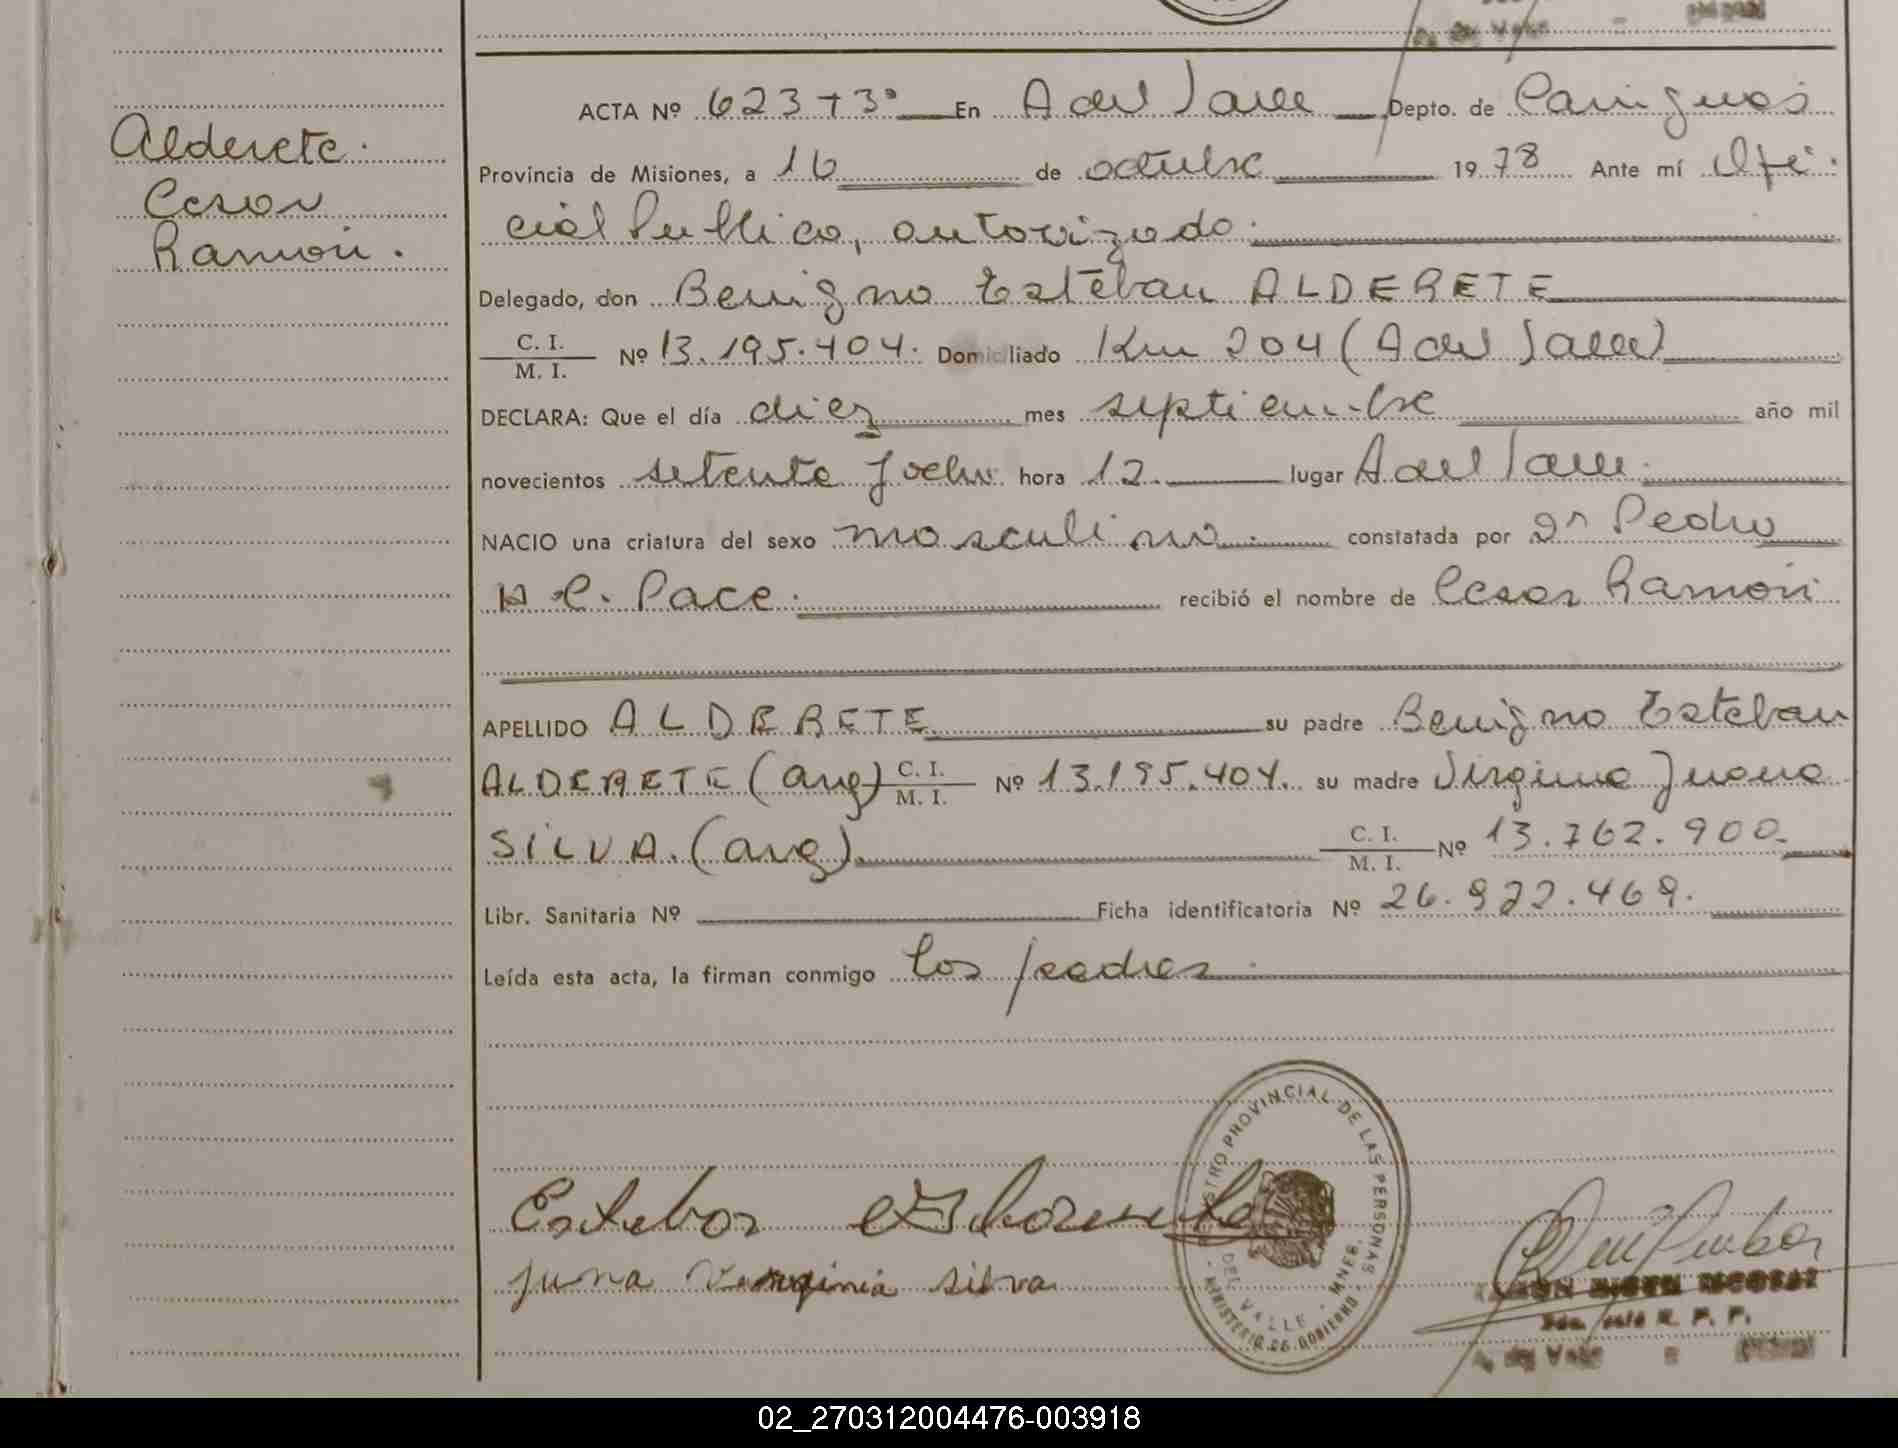 ACTA Nº 623 T 3º En A del Valle Depto. de Cainguas
Alderete.
Cesar
Ramon.
Provincia de Misiones, a 16 de octubre 1978 Ante mí Ofi
cial Publico, autorizado.
Delegado, don Benigno Esteban ALDERETE
C. I.
M. I. Nº 13.195.404. Domiciliado Km 204 (A del Valle)
DECLARA: Que el día diez mes septiembre año mil
novecientos setenta y ocho hora 12. lugar A del Valle.
NACIO una criatura del sexo masculino. constatada por Dr Pedro
H. C. Pace. recibió el nombre de Cesar Ramon
APELLIDO ALDERETE su padre Benigno Esteban
ALDERETE (arg) C. I.
M. I. Nº 13.195.404. su madre Virginia Juana
SILVA. (arg). C. I.
M. I. Nº 13.762.900.
Libr. Sanitaria Nº Ficha identificatoria Nº 26.922.469.
Leída esta acta, la firman conmigo los padres.
REGISTRO PROVINCIAL DE LAS PERSONAS
DEL VALLE - MNES.
MINISTERIO DE GOBIERNO
Juna silva
02_270312004476-003918